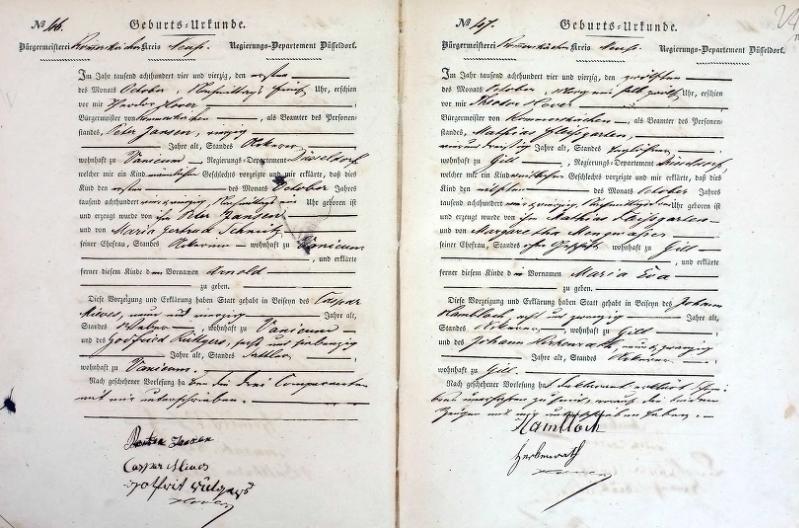 № 46. Geburts-Urkunde.
Bürgermeisterei Rommerskirchen Kreis Neuss. Regierungs-Departement Düsseldorf.
Im Jahr tausend achthundert vier und vierzig, den ersten
des Monats October, Nachmittags fünf Uhr, erschien
vor mir Theodor Hover
Bürgermeister von Rommerskirchen, als Beamter des Personen-
standes, Peter Jansen, vierzig
Jahre alt, Standes Ackerer
wohnhaft zu Vanicum, Regierungs-Departement Düsseldorf
welcher mir ein Kind männlichen Geschlechts vorzeigte und mir erklärte, daß dies
Kind den ersten des Monats October Jahrs
tausend achthundert vier & vierzig, Nachmittags Uhr geboren ist
und erzeugt wurde von ihm Peter Jansen
und von Maria Gertrud Schmitz
seiner Ehefrau, Standes Ackerin wohnhaft zu Vanicum
, und erklärte
ferner diesem Kinde den Vornamen Arnold
zu geben.
Diese Vorzeigung und Erklärung haben Statt gehabt in Beiseyn des Caspar
Mieves, neun und vierzig Jahre alt,
Standes Weber, wohnhaft zu Vanicum
und des Godfried Rüttgers, sechs und siebenzig
Jahre alt, Standes Sattler,
wohnhaft zu Vanicum.
Nach geschehener Vorlesung haben die drei Comparenten
mit mir unterschrieben.
Jansen
Caspar Mieves
Gotfrit Rütgers
Hover
№ 47. Geburts-Urkunde.
Bürgermeisterei Rommerskirchen Kreis Neuss. Regierungs-Departement Düsseldorf.
Im Jahr tausend achthundert vier und vierzig, den zwölften
des Monats October, Morgens halb zwölf Uhr, erschien
vor mir Theodor Hover
Bürgermeister von Rommerskirchen, als Beamter des Personen-
standes, Mathias Fleissgarten,
vier und dreißig Jahre alt, Standes Taglöhner
wohnhaft zu Gill, Regierungs-Departement Düsseldorf
welcher mir ein Kind weiblichen Geschlechts vorzeigte und mir erklärte, daß dies
Kind den eilften des Monats October Jahrs
tausend achthundert vier & vierzig, Nachmittags Uhr geboren ist
und erzeugt wurde von ihm Mathias Fleissgarten
und von Margaretha Mengwasser
seiner Ehefrau, Standes ohne Geschäft wohnhaft zu Gill
, und erklärte
ferner diesem Kinde den Vornamen Maria Eva
zu geben.
Diese Vorzeigung und Erklärung haben Statt gehabt in Beiseyn des Johann
Hambloch, acht und zwanzig Jahre alt,
Standes Ackerer, wohnhaft zu Gill
und des Johann Herkenrath, neun & zwanzig
Jahre alt, Standes Ackerer,
wohnhaft zu Gill.
Nach geschehener Vorlesung hat Declarant erklärt Schrei-
bens unerfahren zu sein, worauf die beiden
Zeugen mit mir unterschrieben haben.
Hambloch
Herkenrath
Hover